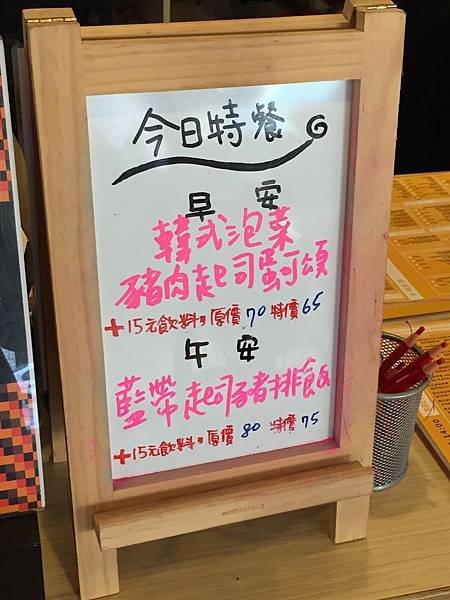 今日特餐
早安
韓式泡菜
豬肉起司蛋可頌
+15元飲料 原價 70 特價 65
午安
藍帶起司豬排飯
+15元飲料 原價 80 特價 75